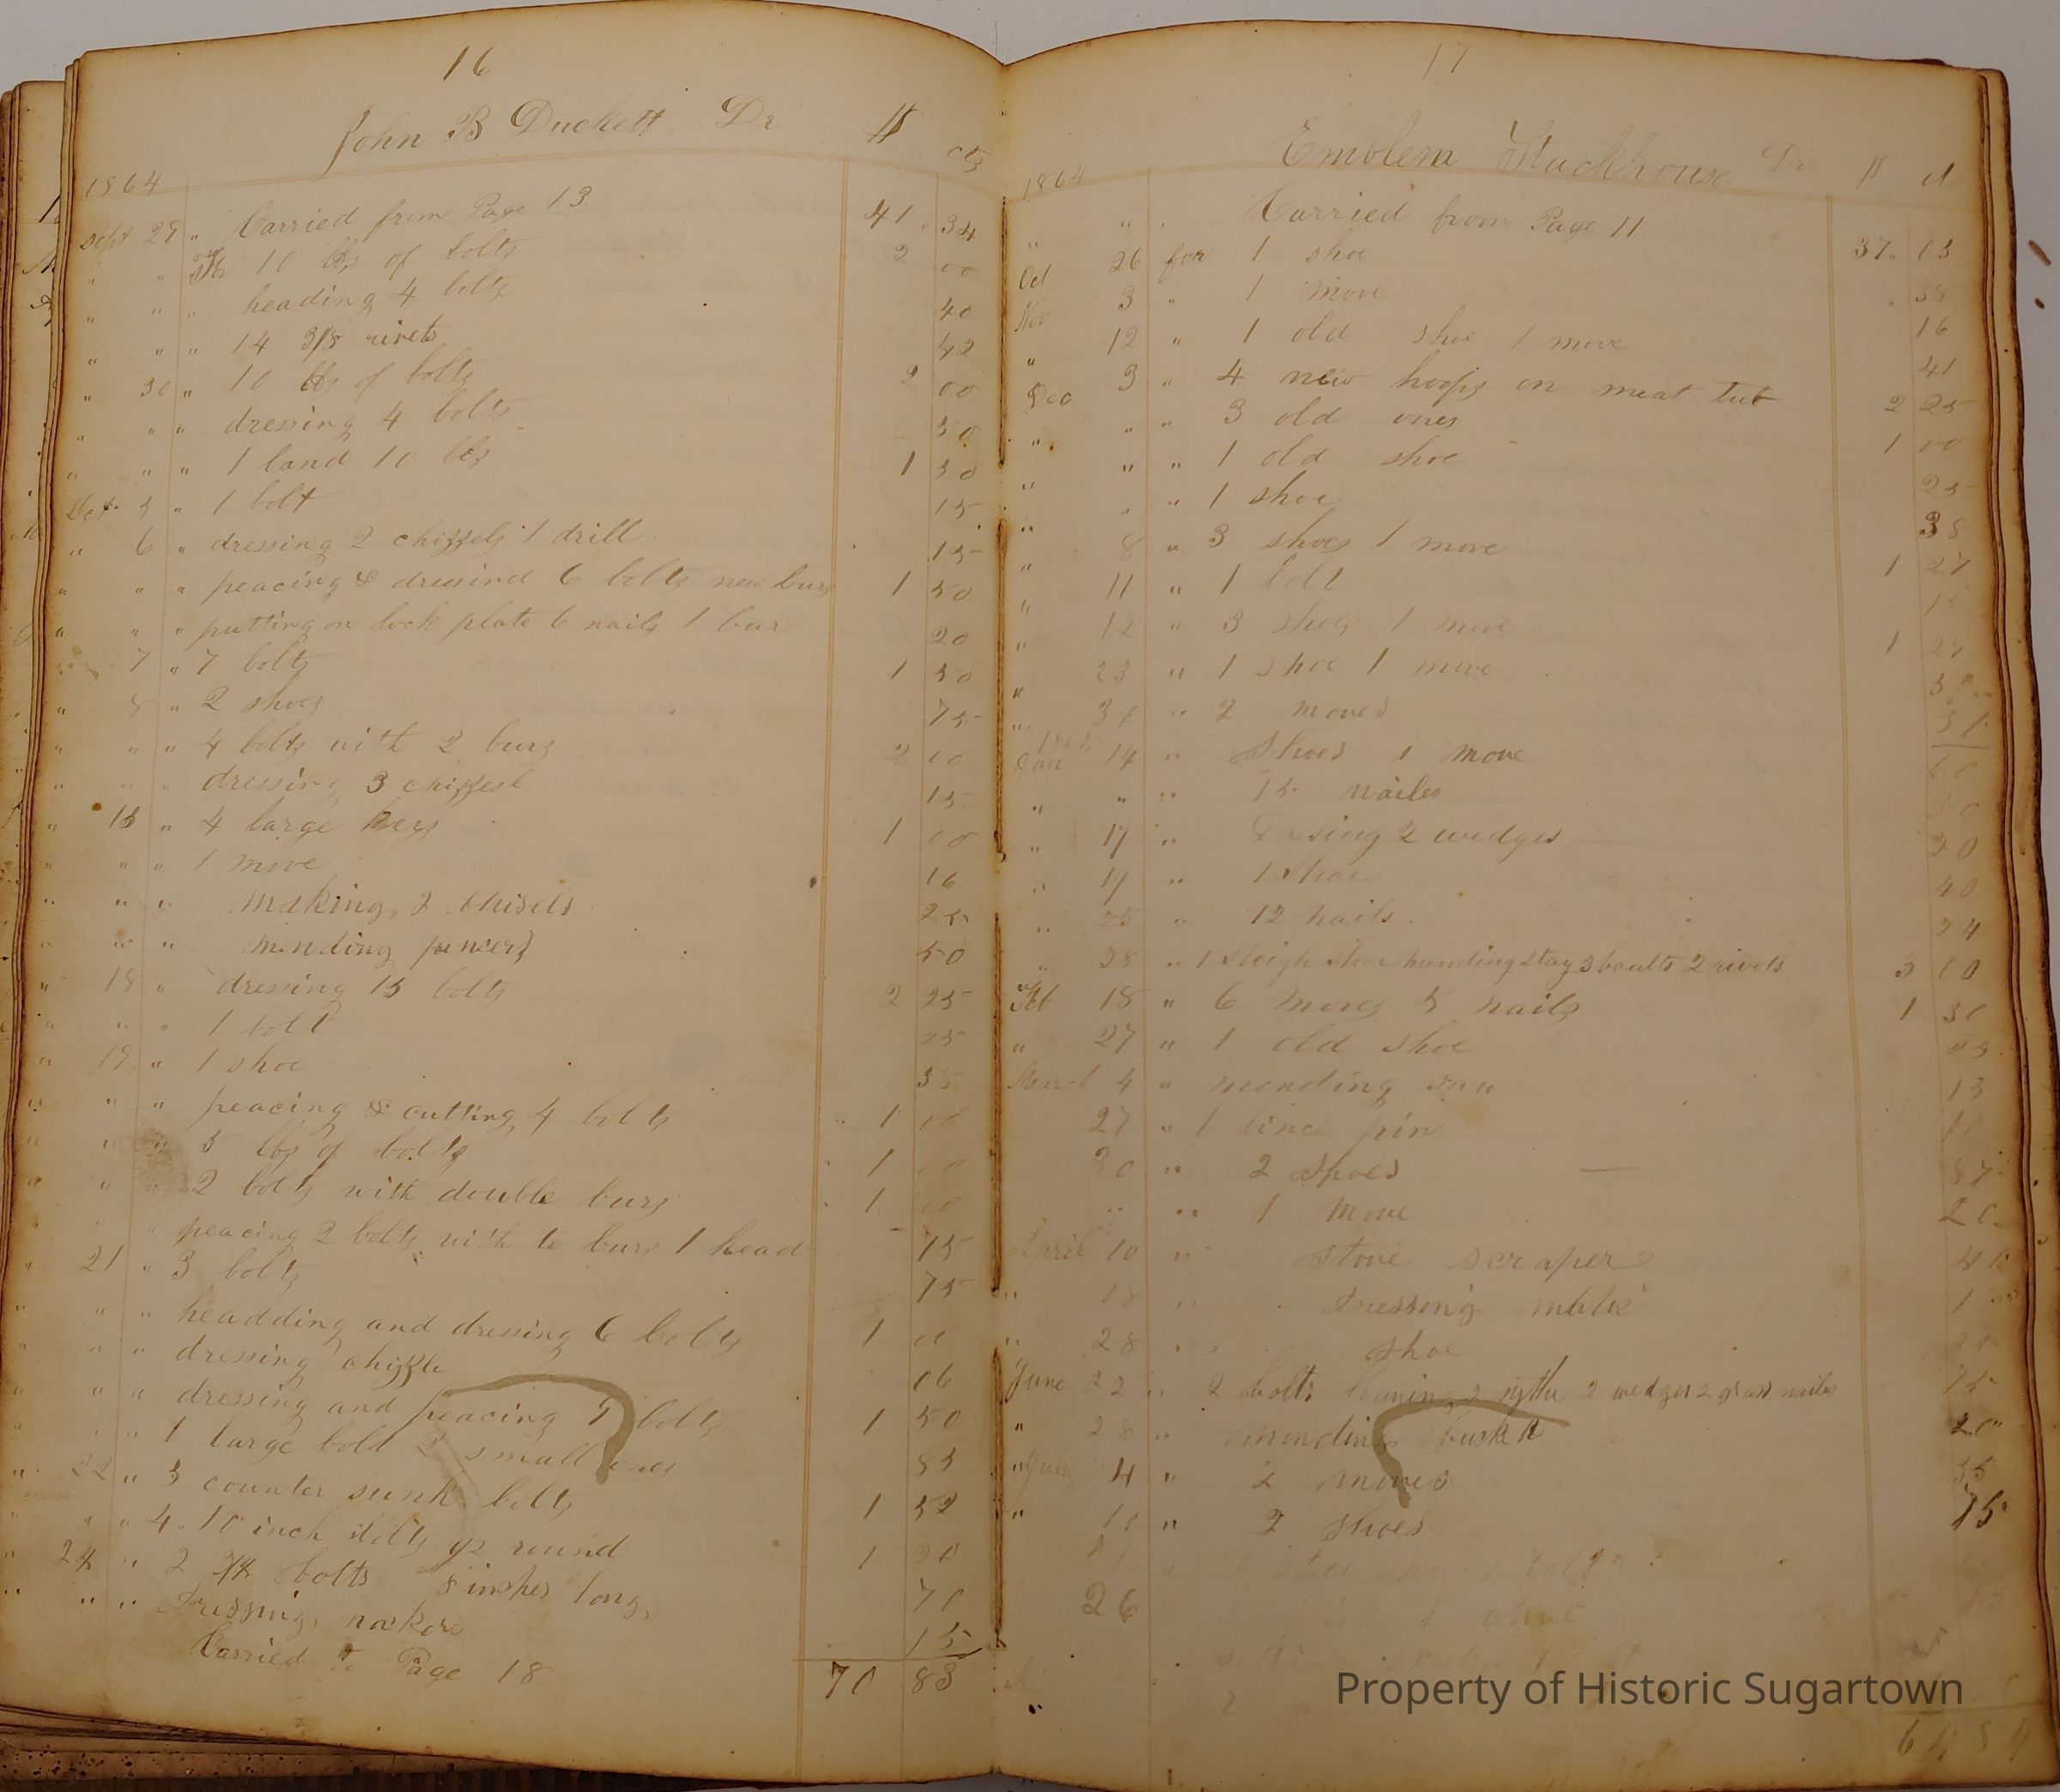 16
John B Duckett Dr $ cts
1864
Sept 29 " Carried from Page 13 41 " 34
" " 10 lbs of bolts 2 00
" " " heading 4 bolts 40
" " " 14 3/8 rivets 42
" 30 " 10 lbs of bolts 2 00
" " " dressing 4 bolts 50
" " " 1 land 10 lbs 1 50
Oct 5 " 1 bolt 15
" 6 " dressing 2 chizzels 1 drill 15
" " " peacing & dressind 6 bolts new burs 1 50
" " " putting on lock plate 6 nails 1 bur 20
" 7 " 7 bolts 1 50
" 8 " 2 shoes 75
" " " 4 bolts with 2 burs 2 00
" " " dressing 3 chizzesl 15
" 15 " 4 large keys 1 00
" " " 1 move 16
" " " making 2 chisels 25
" " " mending pincers 50
" 18 " dressing 15 bolts 2 25
" " " 1 bolt 25
" 19 " 1 shoe 38
" " " peacing & cutting 4 bolts 1 00
" " " 5 lbs of bolts 1 00
" " 2 bolts with double burs 1 00
" " peacing 2 bolts with to burs 1 head 75
" 21 " 3 bolts 75
" " " headding and dressing 6 bolts 1 00
" " " dressing chizzle 06
" " " dressing and peacing bolts 1 50
" " " 1 large bold 2 small ones 85
" 22 " 3 counter sunk bolts 1 52
" " " 4 10 inch bolts 1/2 round 1 20
" 24 " 2 3/4 bolts 8 inches long 70
" " " Dressing 15
Carried to Page 18 70 83
17
Emblem Stackhouse Dr $ ct
1864
" " Carried from Page 11 37 03
Oct 26 for 1 shoe 38
Nov 3 " 1 move 16
" 12 " 1 old shoe 1 move 41
Dec 3 " 4 new hoops on meat tub 2 25
" " " 3 old ones 1 00
" " " 1 old shoe 25
" " " 1 shoe 38
" 8 " 3 shoes 1 move 1 27
" 11 " 1 bolt
" 12 " 3 shoes 1 move 1 27
" 23 " 1 shoe 1 move
" 31 " 2 moves
1865
Jan 14 " Shoes 1 move
" " " 15 nailes 30
" 17 " Dresing 2 wedges 20
" 17 " 1 Shoe 40
" 25 " 12 nails 24
" 28 " 1 Sleigh shoe stay 3 boults 2 rivets 3 10
Feb 18 " 6 moves 5 nails 1 30
" 27 " 1 old shoe 25
March 4 " mending 13
27 " 1 lince pin 10
30 " 2 Shoes 87
" " 1 move 20
April 10 " Stove scraper
" 18 " Dressing
" 28 " Shoe 25
June 22 " 2 bolts 2 sythe 2 wedges 2 grass nailes 75
" 28 " mending 20
July 4 " 2 moves 35
" " 2 Shoes 75
26
Property of Historic Sugartown